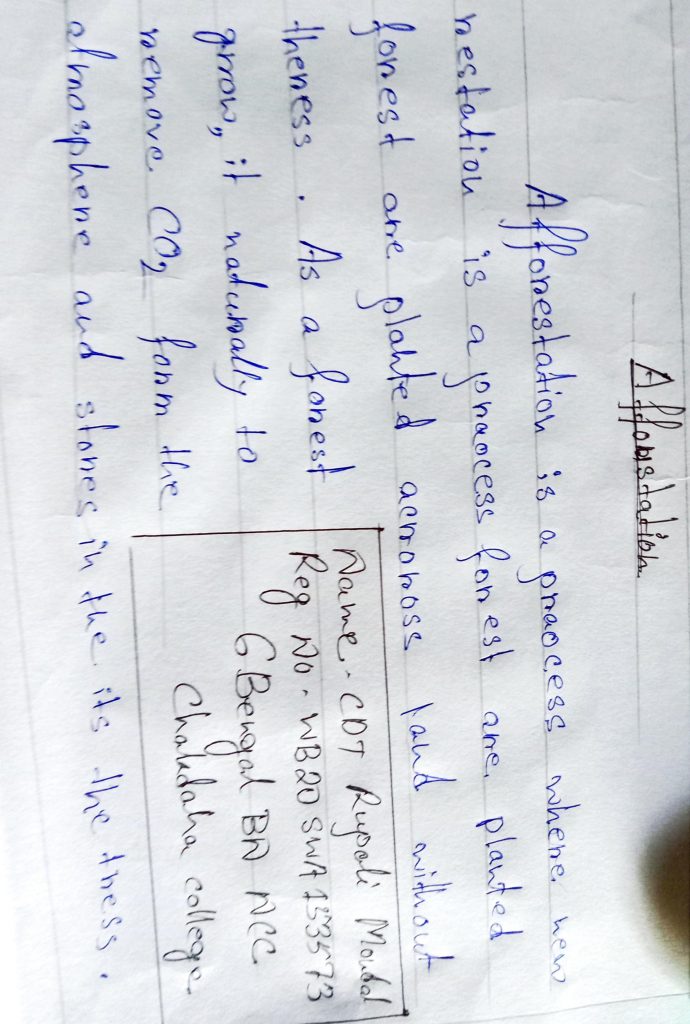 Afforstation
Afforestation is a praocess where new
restation is a praocess forest are planted
forest are planted acrorross land without
theress. As a forest
grrow, it naturally to
remove CO2 form the
atmosphere and stores in the its the tress.
Name - CDT Rupali Mondal
Reg No - WB20SWA153573
6 Bengal BN NCC
Chakdaha college